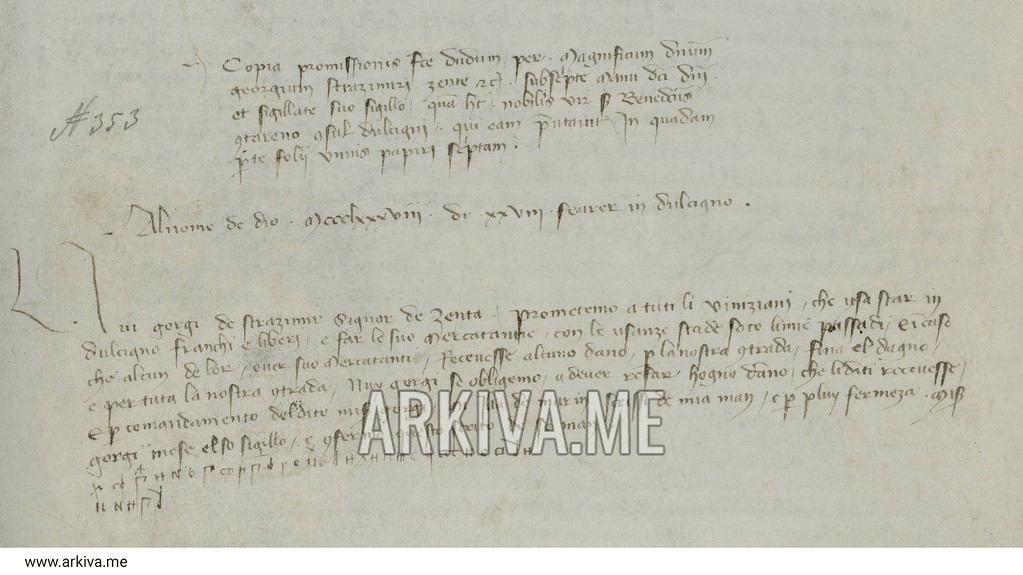 Copia promissionis fce dudum per Magnificum dnum
georgium strazimiri zente &c subscpte Manu dci dni
et sigillate suo sigillo qua ht nobilis vir Benedictus
9tareno 9sul dulcigni qui eam pntavit In quadam
pte folij unius papiri scptam
# 353
Al nome de dio Mccclxxxviiii di xxviii fevrer in dulcigno
Nui gorgi de strazimir Signor de Zenta prometemo a tuti li viniziani che usa star in
dulcigno franchi e liberi e far le suo mercatantie con le usanze soto limie passadi E in caso
che alcun de lor over suo mercatanti Recevesse alcuno dano p la nostra 9trada fina el dagno
e per tuta la nostra 9trada Nuy gorgi se obligemo a dever refar hogno dano che li diti recevesse
E p comandamento del dito mis gorgi de marin scrissi de mia man e p pluy fermeza Mis
gorgi mese el so sigillo e 9ferma questo scrito de so man
ARKIVA.ME
www.arkiva.me